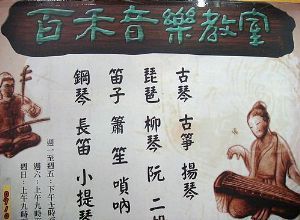 百禾音樂教室
古琴 古箏 揚琴
琵琶 柳琴 阮 二胡
笛子 簫 笙 嗩吶
鋼琴 長笛 小提琴
週一至週五：下午
週六：上午九時
週日：上午九時